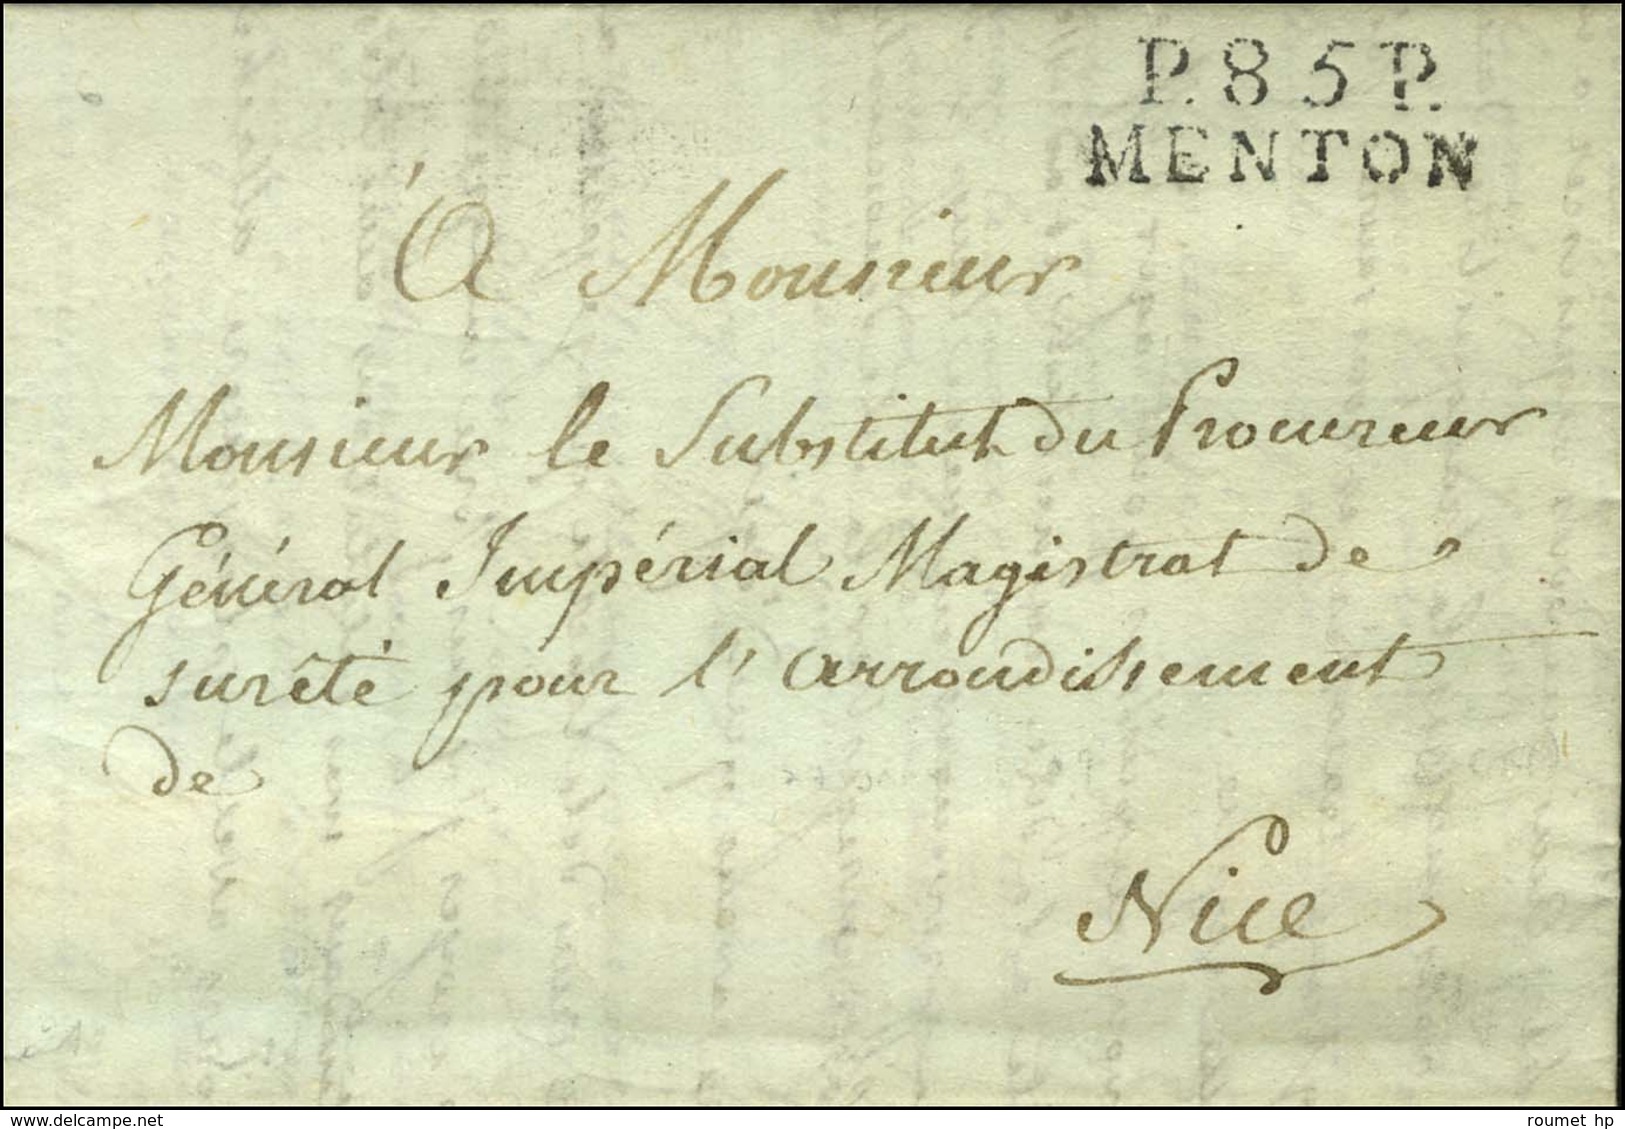 P.85P.
MENTON
À Monsieur
Monsieur le Substitut du Procureur
Général Impérial Magistrat de
surêté pour l'arrondissement
de
Nice
delcampe.net
roumet hp